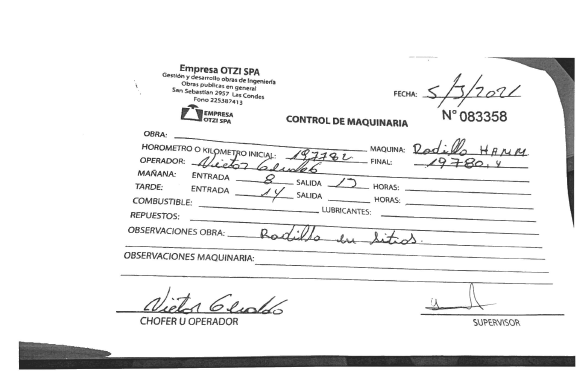 Empresa OTZI SPA
Gestión y desarrollo obras de Ingeniería
Obras publicas en general
San Sebastian 2957 Las Condes
Fono 225387413
EMPRESA
OTZI SPA
FECHA: 5/3/2021
CONTROL DE MAQUINARIA
N° 083358
OBRA: MAQUINA: Rodillo HAMM
HOROMETRO O KILOMETRO INICIAL: FINAL: 19780.4
OPERADOR: Victor
MAÑANA: ENTRADA 8 SALIDA HORAS:
TARDE: ENTRADA 14 SALIDA HORAS:
COMBUSTIBLE: LUBRICANTES:
REPUESTOS:
OBSERVACIONES OBRA: Rodillo en sitios.
OBSERVACIONES MAQUINARIA:
Victor
CHOFER U OPERADOR
SUPERVISOR